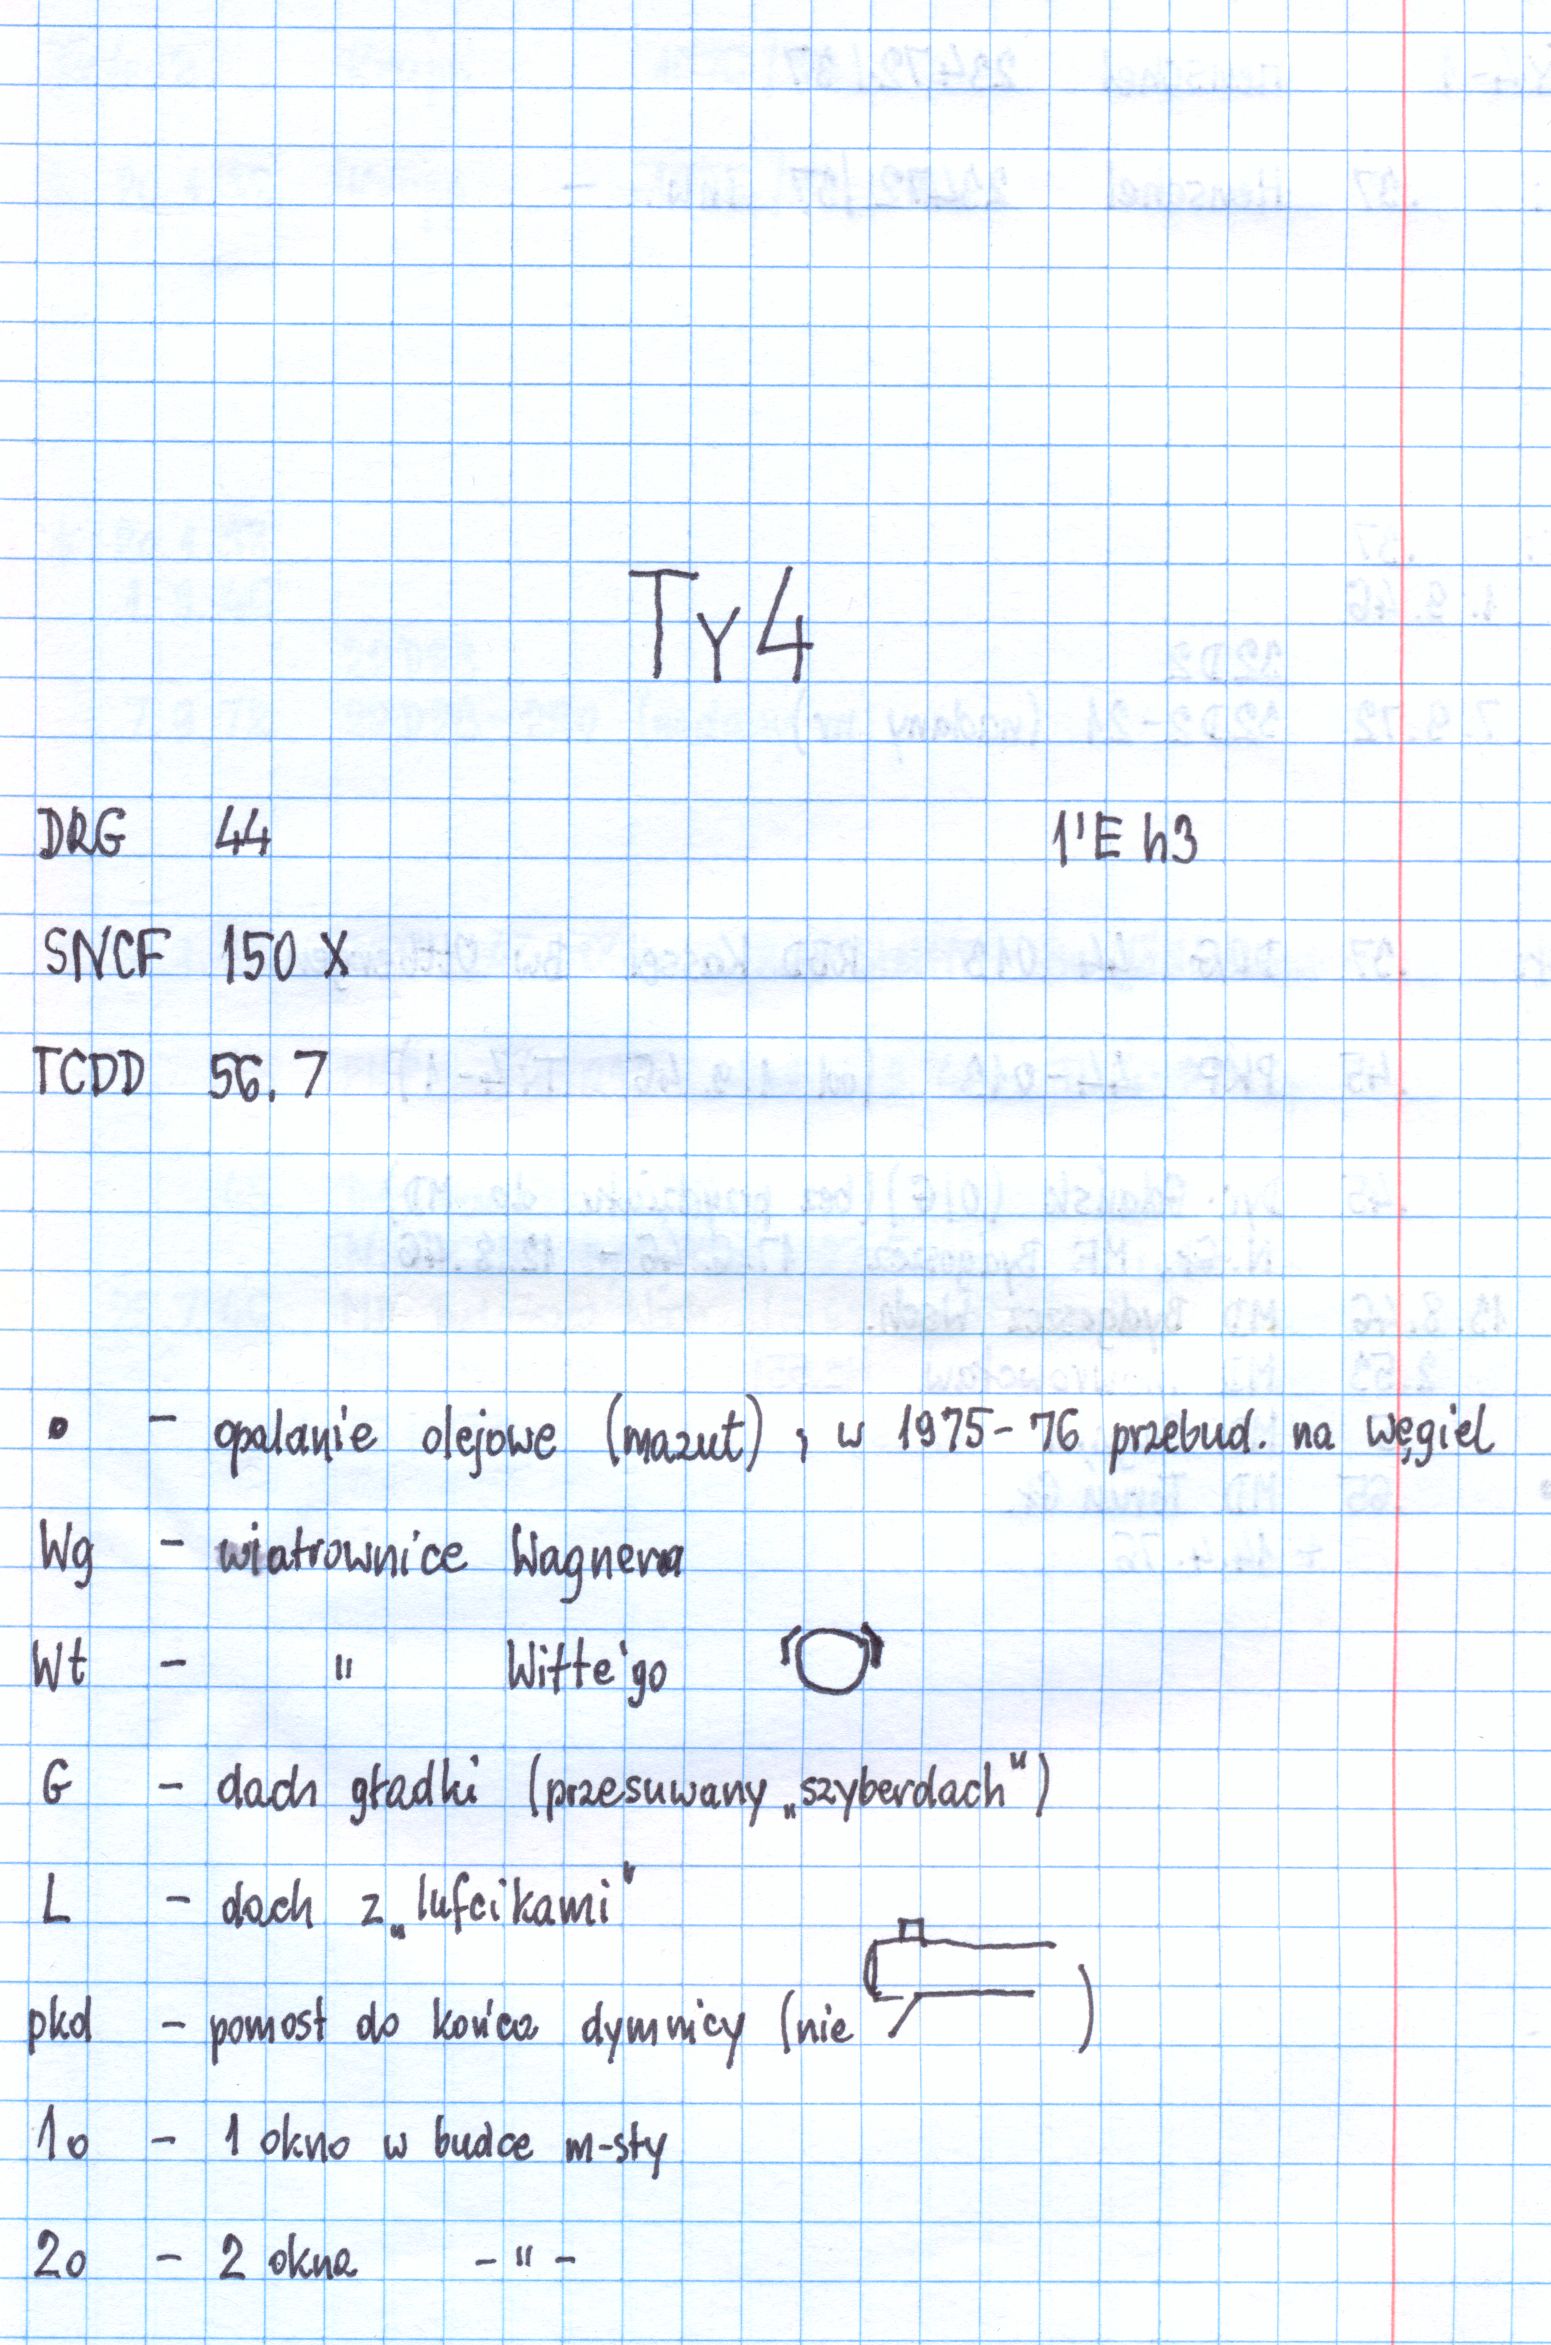 Ty4
DRG 44 1'E h3
SNCF 150 X
TCDD 56.7
• – opalanie olejowe (mazut) ; w 1975-76 przebud. na węgiel
Wg – wiatrownice Wagnera
Wt – " Witte'go
G – dach gładki (przesuwany „szyberdach")
L – dach z „lufcikami"
pkd – pomost do końca dymnicy (nie )
1o – 1 okno w budce m-sty
2o – 2 okna – " –